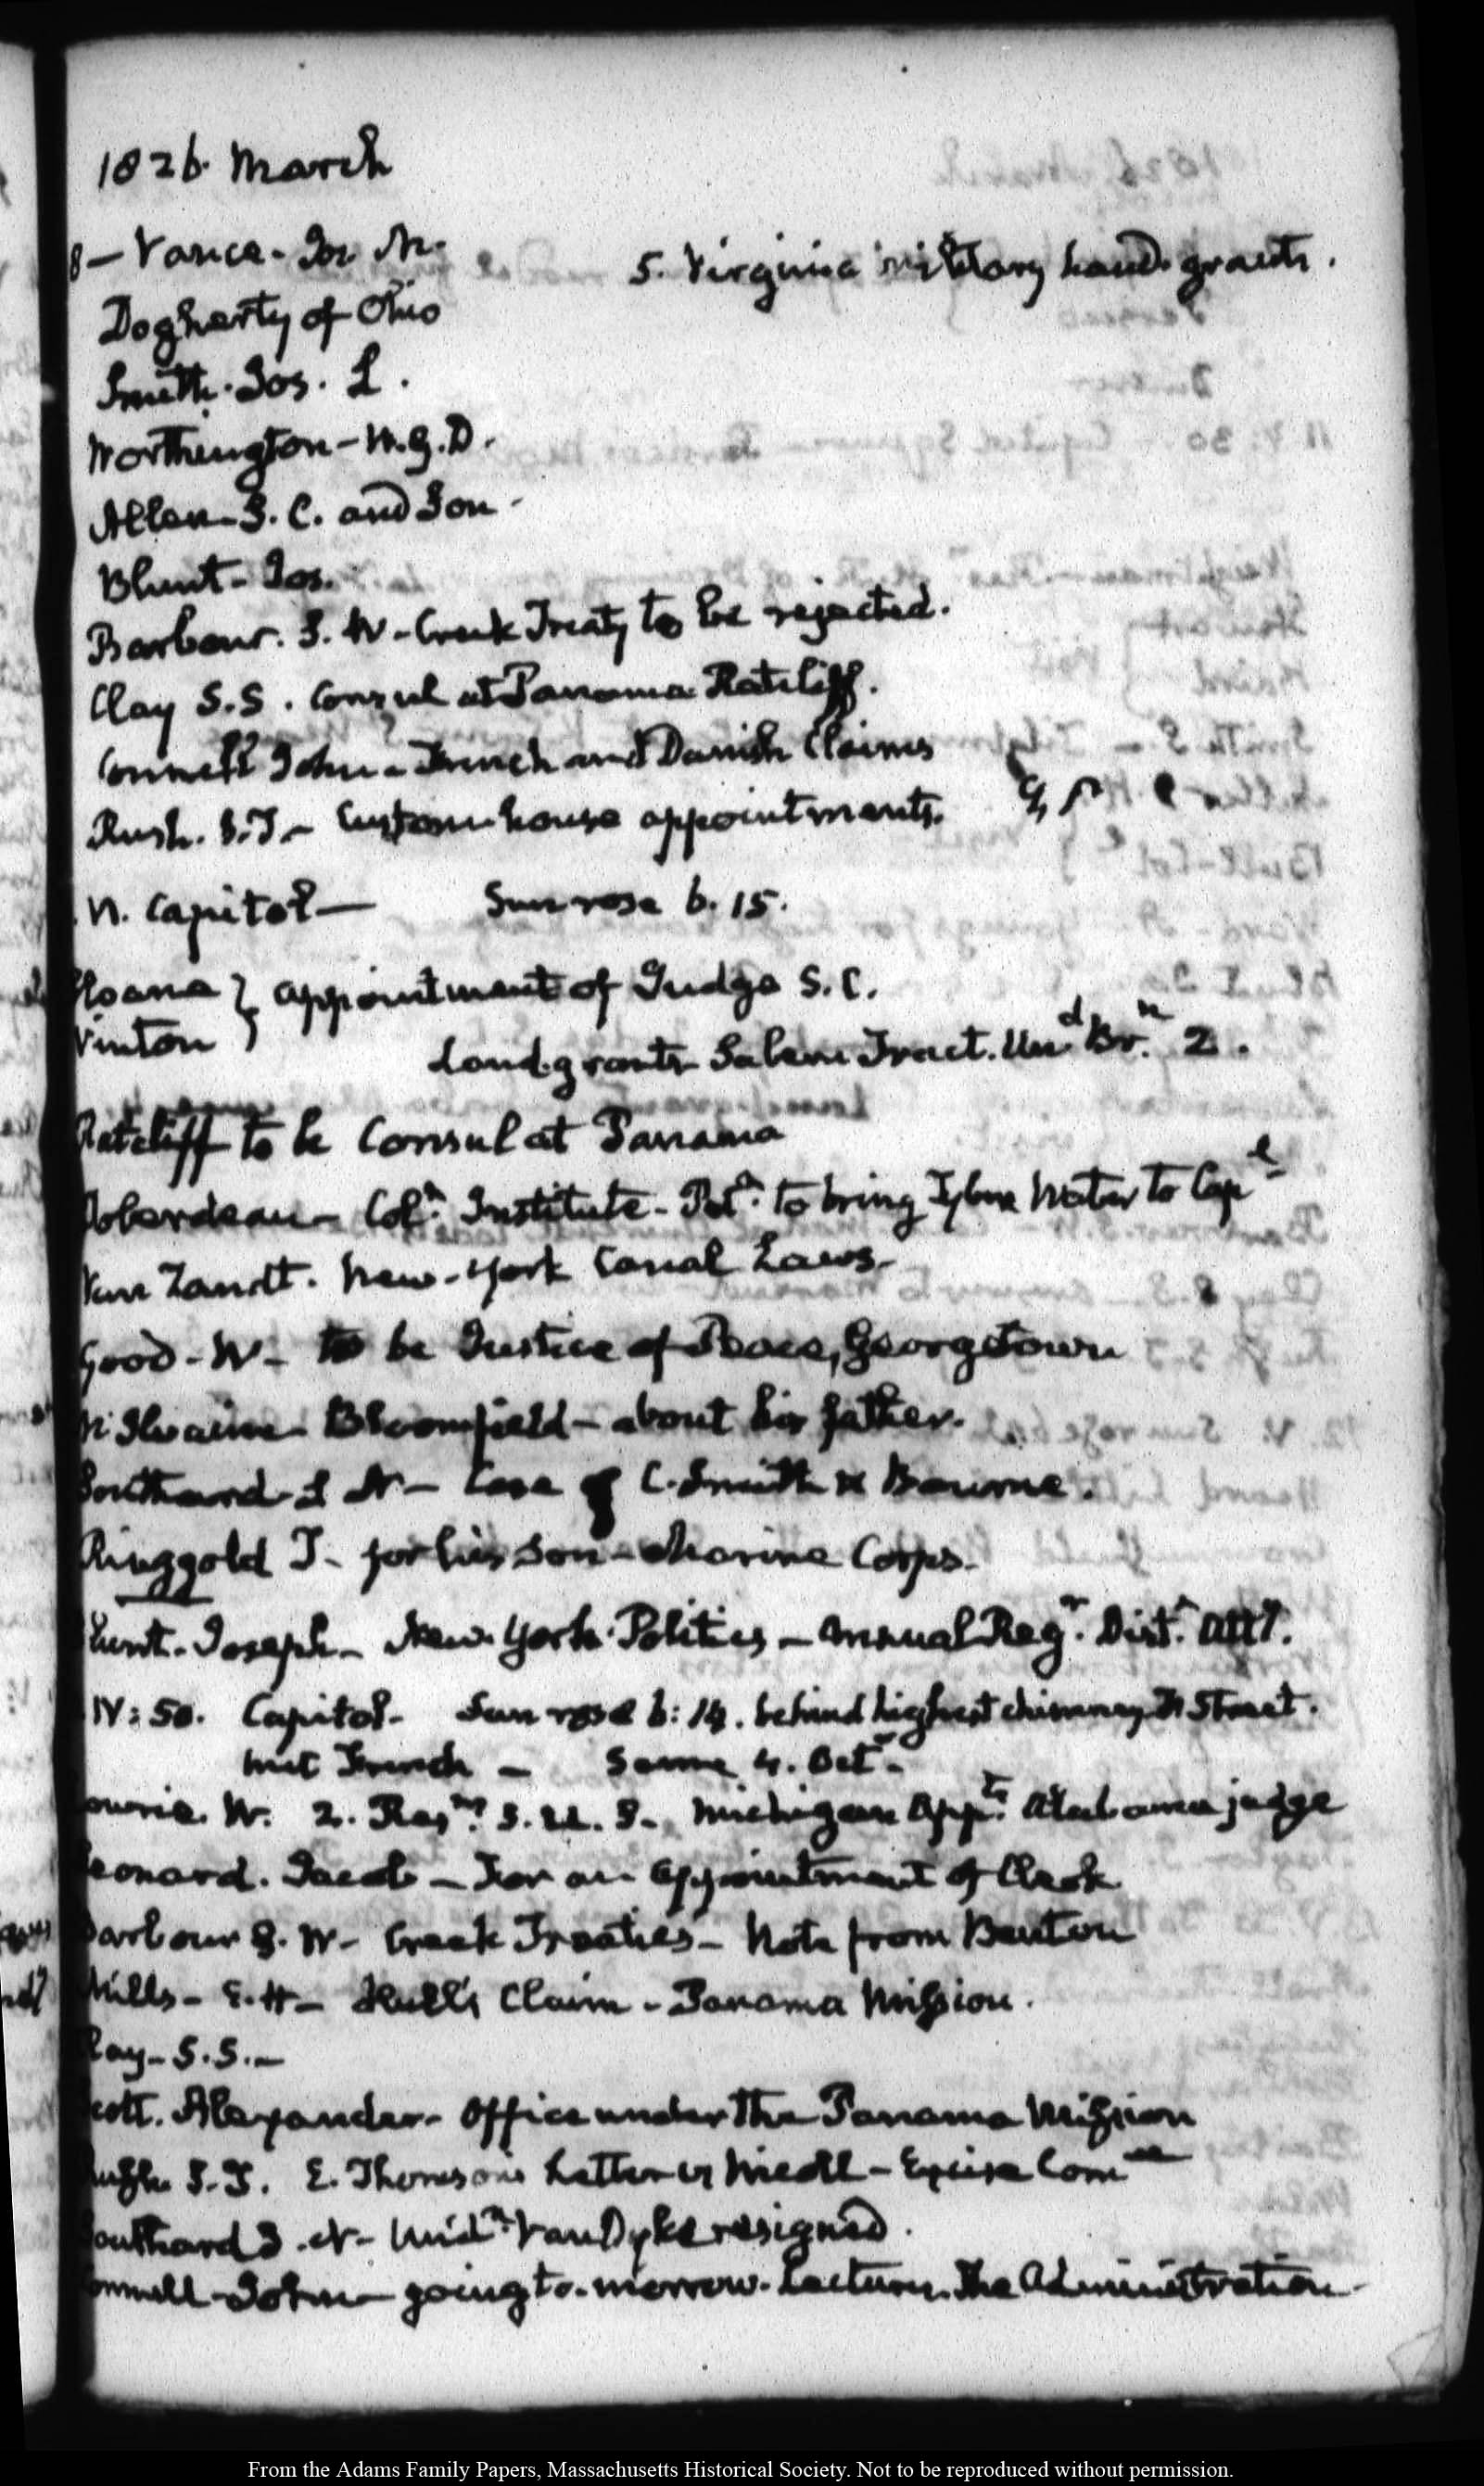 1826. March
8 - Vance. Jos. M. 5. Virginia military land grants.
Dogherty of Ohio
Smith. Jos. L.
Worthington - W.G.D.
Allen - S. C. and Son -
Blunt - Jos.
Barbour. S. W - Creek Treaty to be rejected.
Clay S.S. Consul at Panama Ratcliff.
Connell John - French and Danish Claims
Rush. S.T. - Custom house appointments.
N. Capitol — Sun rose 6. 15.
Sloane } appointment of Judge S. C.
Vinton }
Land grants Salem Tract. Un d Br. n 2.
Ratcliff to be Consul at Panama
Roberdeau - Coln. Institute - Petn. to bring Tyber Water to Cap l -
Van Zandt. New-York Canal Laws -
Good - W - to be Justice of Peace, Georgetown
McIlvaine - Bloomfield - about his father.
Southard - S N - Case of C. Smith & Bourne.
Ringgold T - for his Son - Marine Corps -
Blunt - Joseph - New-York Politics - Annual Regr. Dist. Att y.
IV: 50. Capitol - Sun rose 6: 14. behind highest chimney Street.
met French - Same 4. Octr. -
Lowrie. W. 2. Resns. S. U. S. Michigan Appts. Alabama judge
Leonard. Jacob - For an appointment of Clerk
Barbour S. W - Creek Treaties - Note from Benton
Mills - E. H - Hull's Claim - Panama Mission.
Clay - S.S. -
Scott. Alexander - Office under the Panama Mission
Rush S. T. E. Thomson's Letter
Southard S. N - Midn. Van Dyke resigned.
Connell - John - going to-morrow. Lecture. The Administration -
From the Adams Family Papers, Massachusetts Historical Society. Not to be reproduced without permission.